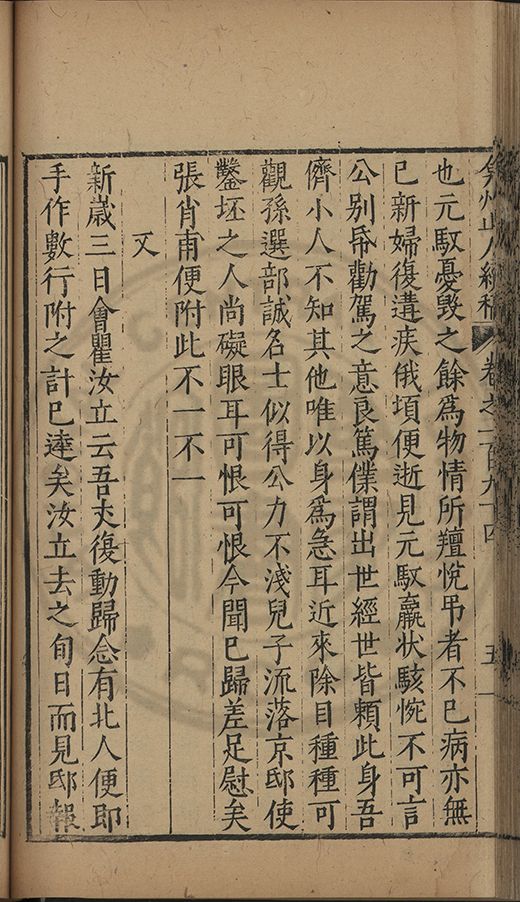 弇州山人續稿 卷之一百九十四 五
也元馭憂毀之餘為物情所羶悅弔者不已病亦無
已新婦復遘疾俄頃便逝見元馭羸狀駭惋不可言
公別帋勸駕之意良篤僕謂出世經世皆賴此身吾
儕小人不知其他唯以身為急耳近來除目種種可
觀孫選部誠名士似得公力不淺兒子流落京邸使
鑿坯之人尚礙眼耳可恨可恨今聞已歸差足慰矣
張肖甫便附此不一不一
又
新歲三日會瞿汝立云吾丈復動歸念有北人便即
手作數行附之計已達矣汝立去之旬日而見邸報